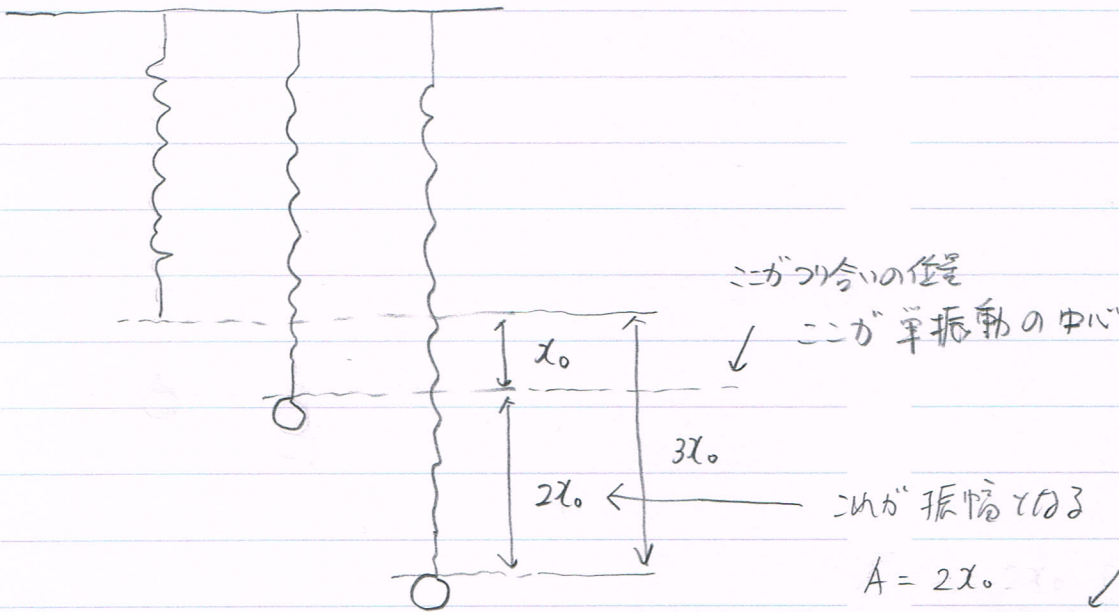 ここがつり合いの位置
ここが単振動の中心
x₀
3x₀
2x₀
これが振幅となる
A = 2x₀